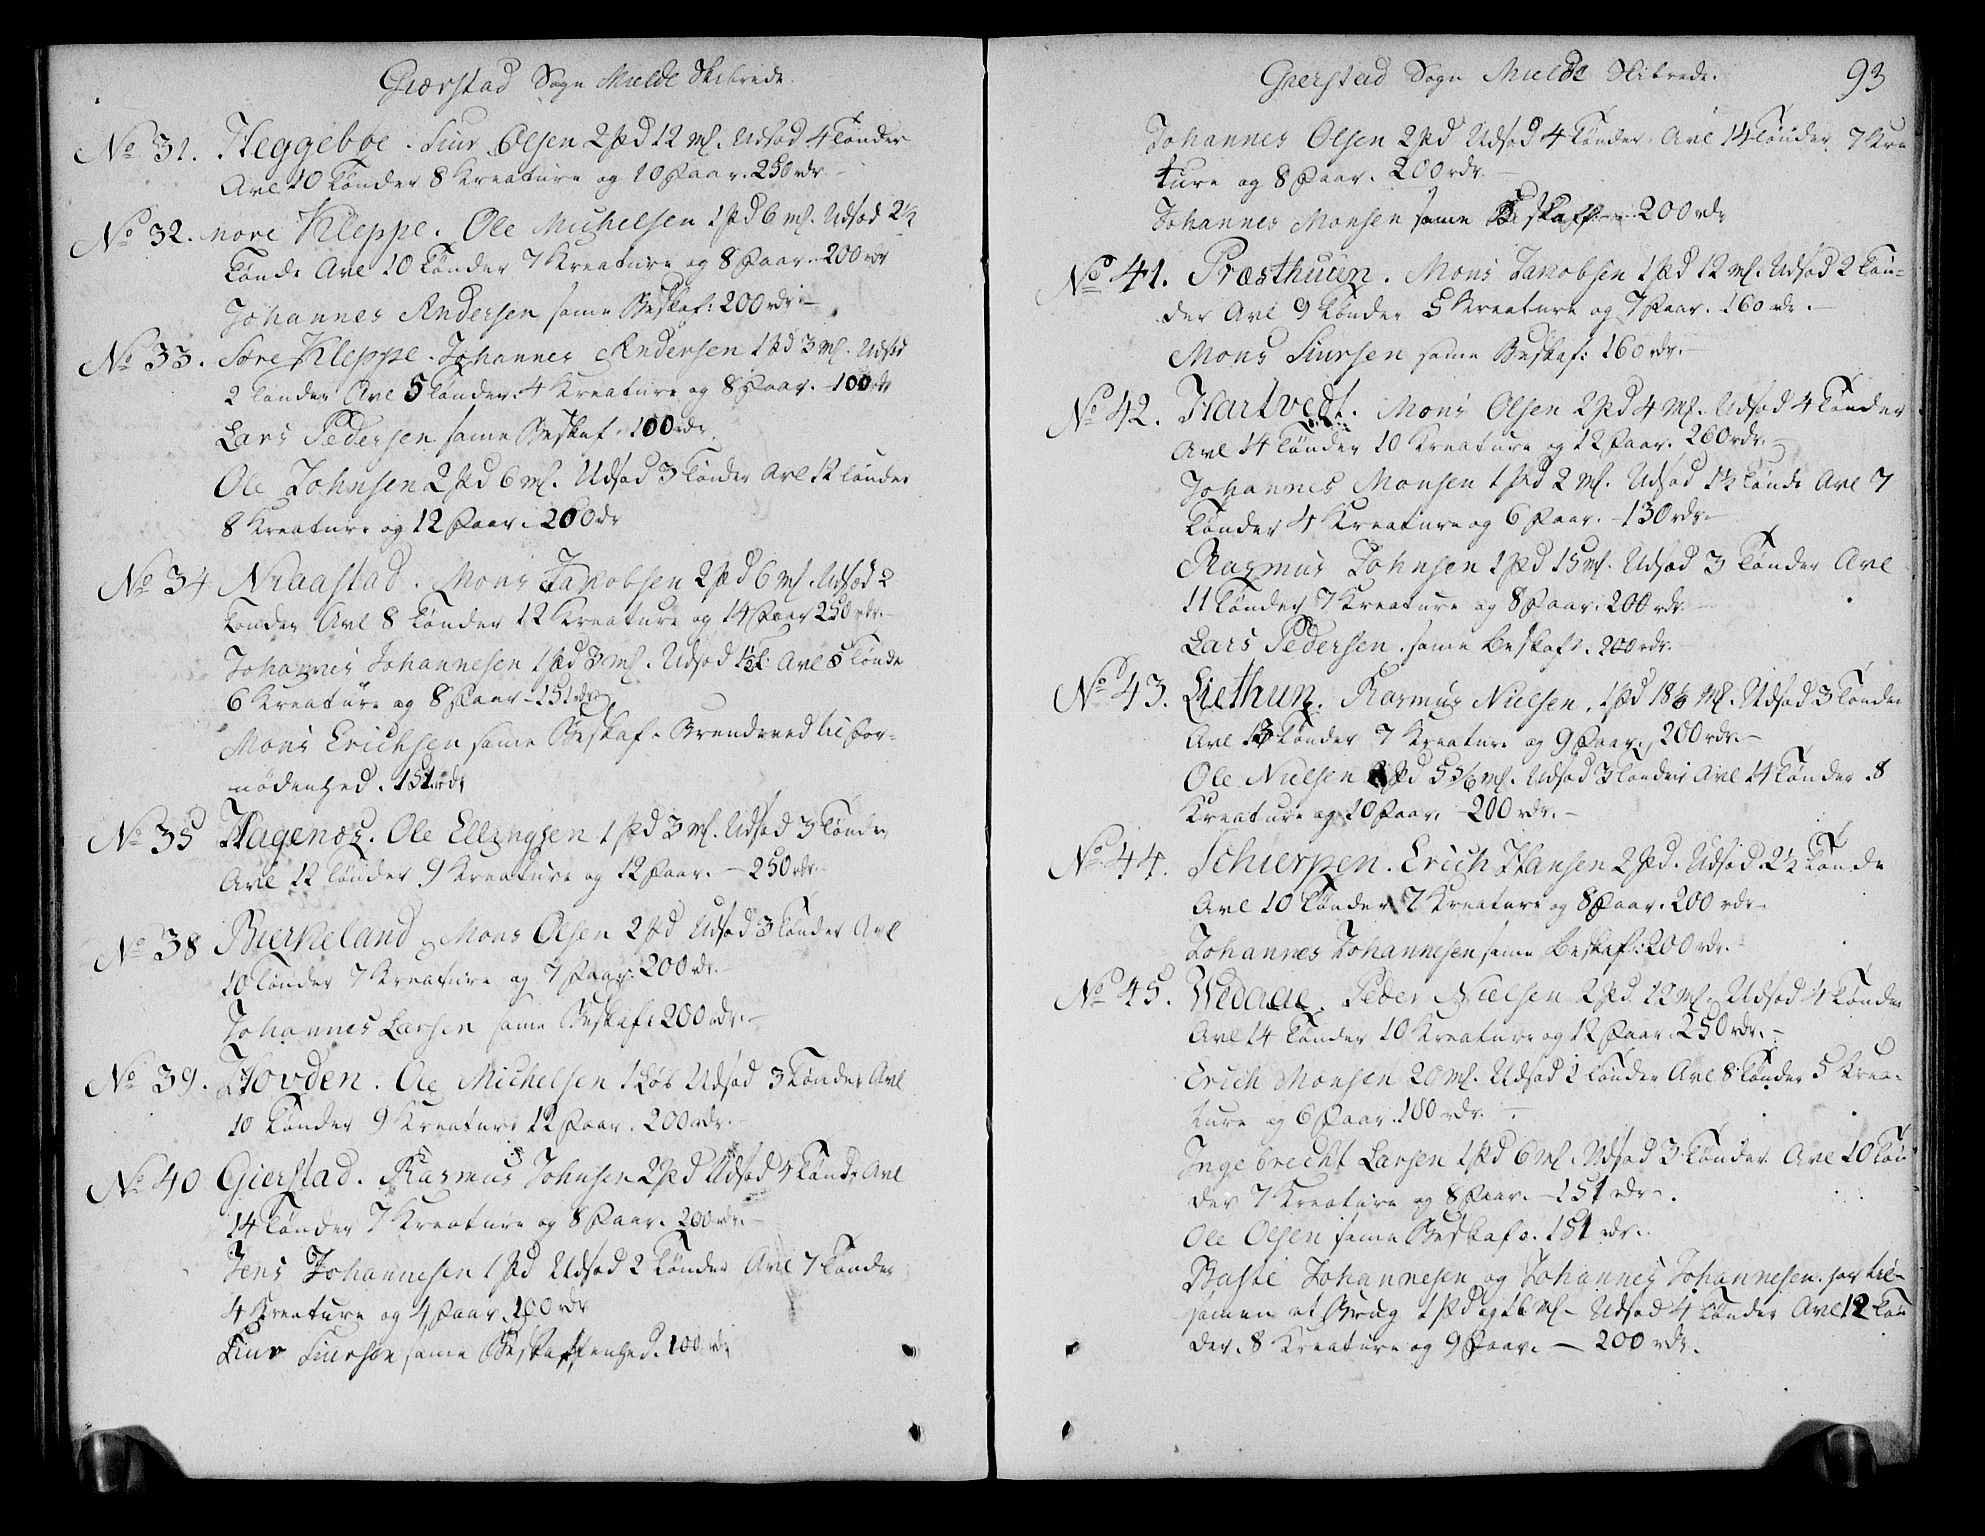 Gierstad Sogn Mielde Skibrede.
No 31. Heggeboe. Siur Olsen 2 pd 12 mꝭ. Udsæd 4 Tønder
Avl 10 Tønder 8 Kreature og 10 Faar. 250 rdr. –
No 32. nore Kleppe. Ole Michelsen 1 pd 6 mꝭ. Udsæd 2½
Tønde Avl 10 Tønder 7 Kreature og 8 Faar. 200 rdr
Johannes Andersen same Beskaf: 200 rdr. –
No 33. Søre Kleppe. Johannes Andersen 1 pd 3 mꝭ. Udsæd
2 Tønder Avl 5 Tønder. 4 Kreature og 8 Faar. – 100 rdr
Lars Pedersen same Beskaf. 100 rdr.
Ole Johnsen 2 pd 6 mꝭ. Udsæd 3 Tønder Avl 12 Tønder
8 Kreature og 12 Faar. 200 dr
No 34 Nraastad. Mons Jacobsen 2 pd 6 mꝭ. Udsæd 2
Tønder Avl 8 Tønder 12 Kreature og 14 Faar 250 rdr. –
Johannes Johannesen 1 pd 3 mꝭ. Udsæd 1½ t: Avl 5 Tønde
6 Kreature og 8 Faar – 151 rdr
Mons Erichsen same Beskaf. Brendeved til for-
nødenhed. 151 rd,
No 35 Hagenæs. Ole Ellingsen 1 pd 3 mꝭ. Udsæd 3 Tønder
Avl 12 Tønder 9 Kreature og 12 Faar. – 250 rdr.
No 38 Bierkeland. Mons Olsen 2 pd Udsæd 3 Tønder Avl
10 Tønder 7 Kreature og 7 Faar: 200 dr. –
Johannes Larsen same Beskaf: 200 rdr. –
No 39. Hovden. Ole Michelsen 1 Løb Udsæd 3 Tønder Avl
10 Tønder 9 Kreature 12 Faar. 200 rdr. –
No 40 Gierstad. Rasmus Johnsen 2 pd Udsæd 4 Tønde Avl
14 Tønder 7 Kreature og 8 Faar. 200 rdr. –
Jens Johannesen 1 pd Udsæd 2 Tønder Avl 7 Tønder
4 Kreature og 4 Faar. 100 rdr
Siur Siursen same Beskaffenhed. 100 rd,
Gierstad Sogn Mielde Skibrede. 93
Johannes Olsen 2 pd Udsæd 4 Tønder. Avl 14 Tønder 7 Krea
ture og 8 Faar. 200 rdr. –
Johannes Monsen same Beskaf – 200 rdr
No 41. Præsthuun. Mons Jacobsen 1 pd 12 mꝭ. Udsæd 2 Tøn-
der Avl 9 Tønder 5 Kreature og 7 Faar. 160 rdr. –
Mons Siursen same Beskaf: 160 rdr. –
No 42. Hartvedt. Mons Olsen 2 pd 4 mꝭ. Udsæd 4 Tønder
Avl 14 Tønder 10 Kreature og 12 Faar. 260 rdr. –
Johannes Monsen 1 pd 2 mꝭ. Udsæd 1½ Tønde Avl 7
Tønder 4 Kreature og 6 Faar. – 130 rdr. –
Rasmus Johnsen 1 pd 15 mꝭ. Udsæd 3 Tønder Avl
11 Tønder 7 Kreature og 8 Faar. 200 rdr. –
Lars Pedersen. same beskaf:. 200 rdr.
No 43. Liethun. Rasmus Nielsen. 1 pd 18⅙ mꝭ. Udsæd 3 Tønder
Avl 13 Tønder 7 Kreature og 9 Faar. 200 rdr. –
Ole Nielsen pd 5 5/6 mꝭ. Udsæd 3 Tønder Avl 14 Tønder 8
Kreature og 10 Faar. – 200 rdr. –
No 44. Schierpen. Erich Hansen 2 pd. Udsæd. 2½ Tønde
Avl 10 Tønder 7 Kreature og 8 Faar. 200 rdr –
Johannes Johannesen same beskaf: 200 rdr. –
No 45. Wedaae. Peder Nielsen 2 pd 12 mꝭ. Udsæd 4 Tønder
Avl 14 Tønder 10 Kreature og 12 Faar. 250 rdr. –
Erich Monsen 20 mꝭ. Udsæd 2 Tønder Avl 8 Tønder 5 Krea-
ture og 6 Faar. 100 rdr. –
Ingebrecht Larsen 1 pd 6 mꝭ. Udsæd 3 Tønder. Avl 10 Tøn
der 7 Kreature og 8 Faar. – 151 rdr. –
Ole Olsen same Beskaf:. 151 rdr.
Baste Johannesen og Johannes Johannesen. har til-
samen et Brug 1 pd mꝭ – Udsæd 4 Tønder Avl 12 Tøn
der. 8 Kreature og 9 Faar. – 200 rdr.